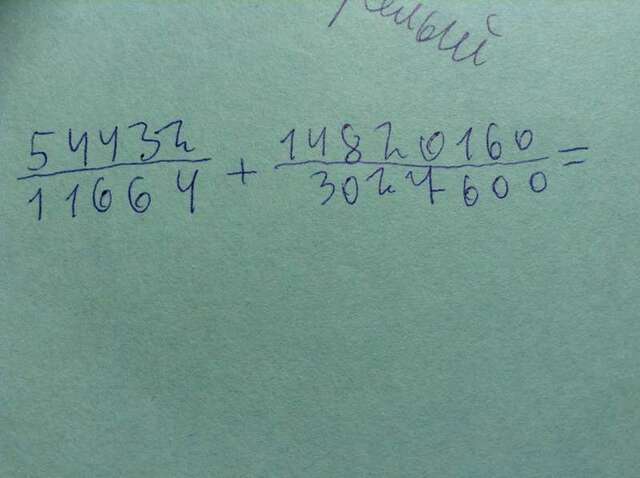 елый
54432/11664 + 14820160/3027600 =